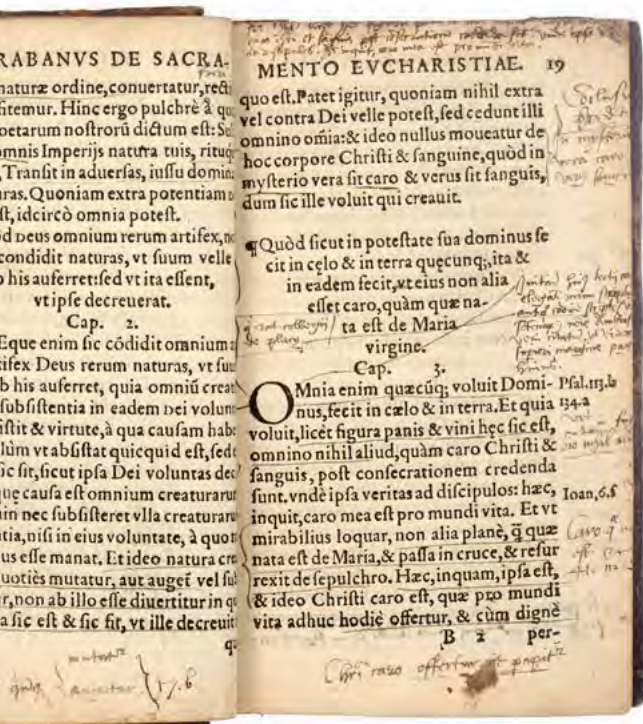 RABANVS DE SACRA-
naturæ ordine, conuertatur, recti
fitemur. Hinc ergo pulchrè à qu
oetarum nostrorũ dictum est: Su
omnis Imperijs natura tuis, rituq́;
, Transit in aduersas, iussu domin
uras. Quoniam extra potentiam
st, idcircò omnia potest.
d Deus omnium rerum artifex, n
condidit naturas, vt suum velle
b his auferret: sed vt ita essent,
vt ipse decreuerat.
Cap. 2.
Eque enim sic cõdidit omnium
tifex Deus rerum naturas, vt su
b his auferret, quia omniũ creat
subsistentia in eadem Dei volun
istit & virtute, à qua causam habe
lùm vt absistat quicquid est, sed
sic sit, sicut ipsa Dei voluntas dec
quę causa est omnium creaturaru
in nec subsisteret vlla creaturaru
tia, nisi in eius voluntate, à quo
us esse manat. Et ideo natura cre
uotiès mutatur, aut augeť vel su
r, non ab illo esse diuertitur in q
a sic est & sic fit, vt ille decreuit
q
MENTO EVCHARISTIAE. 19
quo est. Patet igitur, quoniam nihil extra
vel contra Dei velle potest, sed cedunt illi
omnino oĩa: & ideo nullus moueatur de
hoc corpore Christi & sanguine, quòd in
mysterio vera sit caro & verus sit sanguis,
dum sic ille voluit qui creauit.
¶ Quòd sicut in potestate sua dominus fe
cit in cęlo & in terra quęcunq;, ita &
in eadem fecit, vt eius non alia
esset caro, quàm quæ na-
ta est de Maria
virgine.
Cap. 3.
OMnia enim quæcũq; voluit Domi- Psal. 113. b
nus, fecit in cælo & in terra. Et quia 134. a
voluit, licèt figura panis & vini hęc sic est,
omnino nihil aliud, quàm caro Christi &
sanguis, post consecrationem credenda
sunt. vndè ipsa veritas ad discipulos: hæc, Ioan. 6. f
inquit, caro mea est pro mundi vita. Et vt
mirabilius loquar, non alia planè, q̃ quæ
nata est de Maria, & passa in cruce, & resur
rexit de sepulchro. Hæc, inquam, ipsa est,
& ideo Christi caro est, quæ pro mundi
vita adhuc hodiè offertur, & cùm dignè
B 2 per-